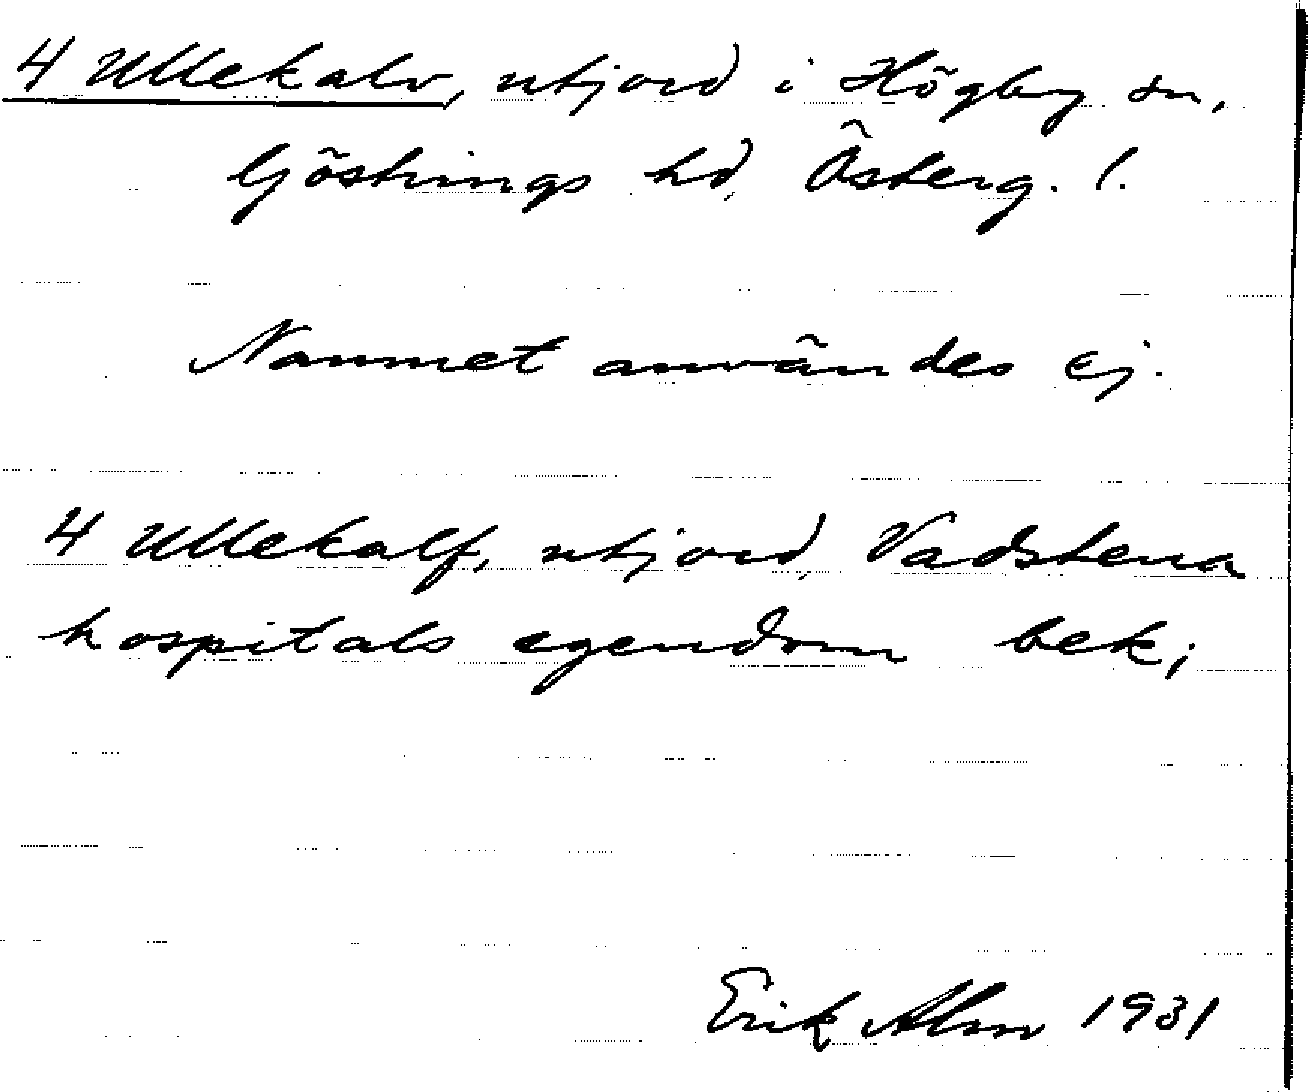 4 Ullekalv, utjord i Högby sn,
Göstrings hd, Österg. l.
Namnet användes ej.
4 Ullekalf, utjord, Vadstena
hospitals egendom bek;
Erik Alm 1931